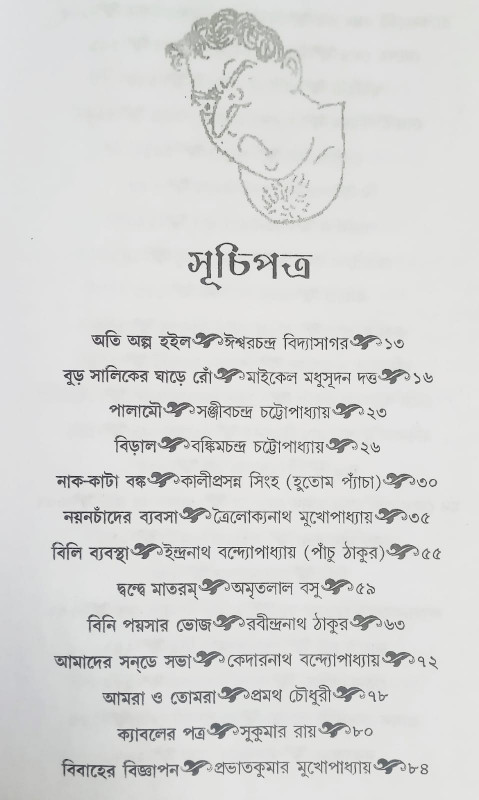 সূচিপত্র
অতি অল্প হইল ঈশ্বরচন্দ্র বিদ্যাসাগর ১৩
বুড় সালিকের ঘাড়ে রোঁ মাইকেল মধুসূদন দত্ত ১৬
পালামৌ সঞ্জীবচন্দ্র চট্টোপাধ্যায় ২৩
বিড়াল বঙ্কিমচন্দ্র চট্টোপাধ্যায় ২৬
নাক-কাটা বঙ্ক কালীপ্রসন্ন সিংহ (হুতোম প্যাঁচা) ৩০
নয়নচাঁদের ব্যবসা ত্রৈলোক্যনাথ মুখোপাধ্যায় ৩৫
বিলি ব্যবস্থা ইন্দ্রনাথ বন্দ্যোপাধ্যায় (পাঁচু ঠাকুর) ৫৫
দ্বন্দ্বে মাতরম্ অমৃতলাল বসু ৫৯
বিনি পয়সার ভোজ রবীন্দ্রনাথ ঠাকুর ৬৩
আমাদের সন্‌ডে সভা কেদারনাথ বন্দ্যোপাধ্যায় ৭২
আমরা ও তোমরা প্রমথ চৌধুরী ৭৮
ক্যাবলের পত্র সুকুমার রায় ৮০
বিবাহের বিজ্ঞাপন প্রভাতকুমার মুখোপাধ্যায় ৮৪